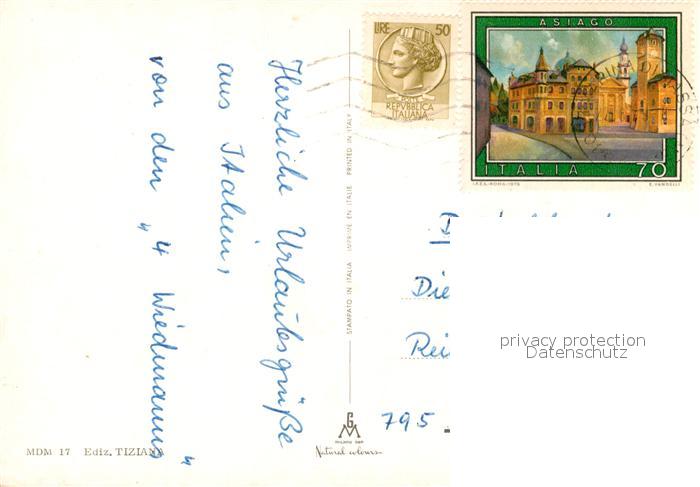 Herzliche Urlaubsgrüße
aus Italien,
von den „4 Wiedmanns"
MDM 17 Ediz. TIZIANA
STAMPATO IN ITALIA IMPRIMÉ EN ITALIE PRINTED IN ITALY
GM
Natural colours
LIRE 50
POSTE
REPVBBLICA
ITALIANA
ASIAGO
ITALIA 70
I.P.Z.S.-ROMA-1976 E. VANGELLI
Die
Rei
795
privacy protection
Datenschutz